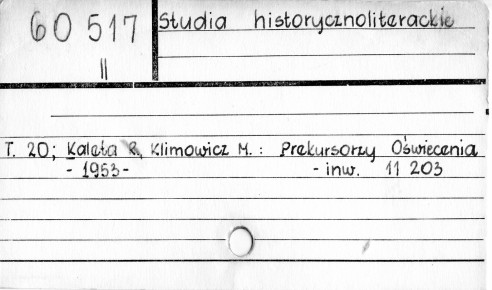 60 517
II
Studia historycznoliterackie
T. 20; Kaleta R., Klimowicz M. : Prekursorzy Oświecenia
- 1953 -
- inw. 11 203